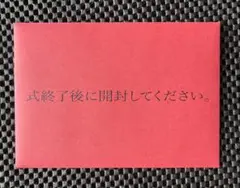 式終了後に開封してください。